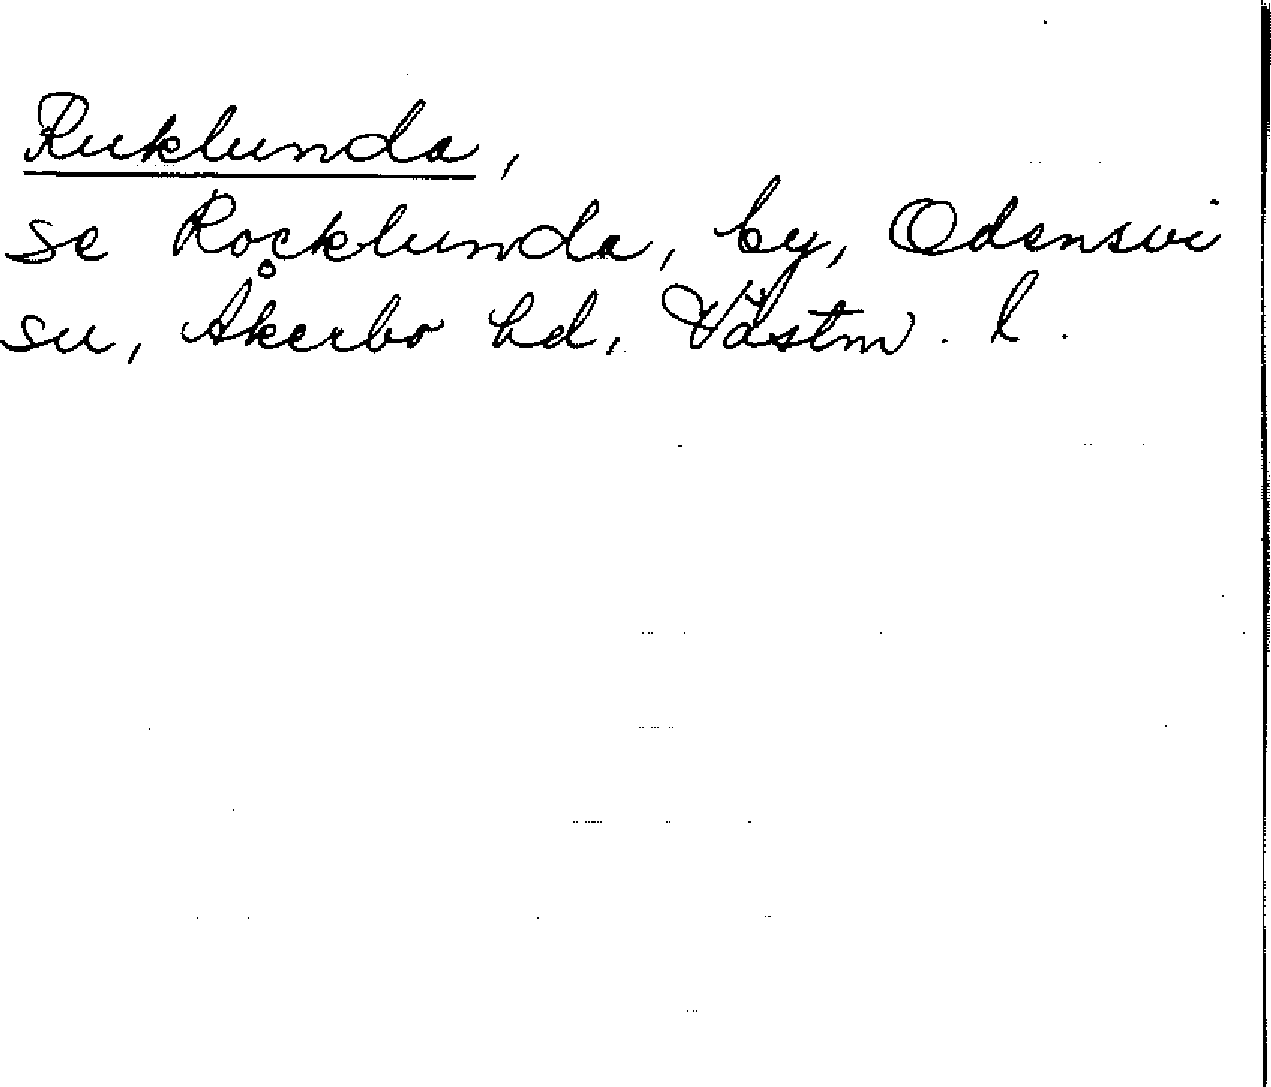 Ruklunda,
se Rocklunda, by, Odensvi
sn, Åkerbo hd, Västm. l.